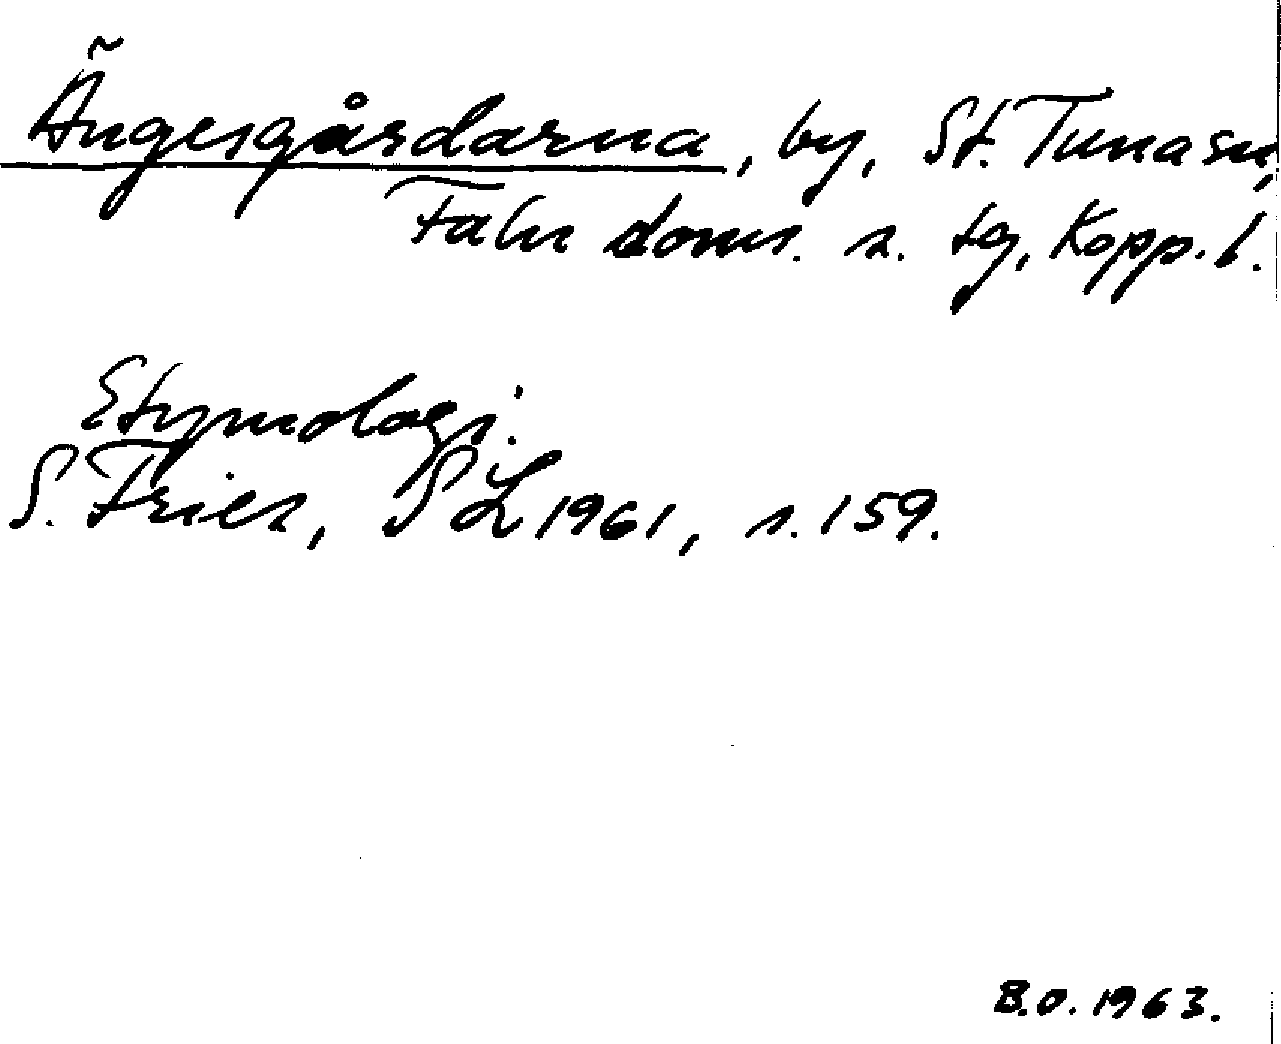 Ängesgårdarna, by, St. Tuna sn,
Falu doms. s. tg, Kopp. l.
Etymologi.
S. Fries, SL 1961, s. 159.
B.O. 1963.